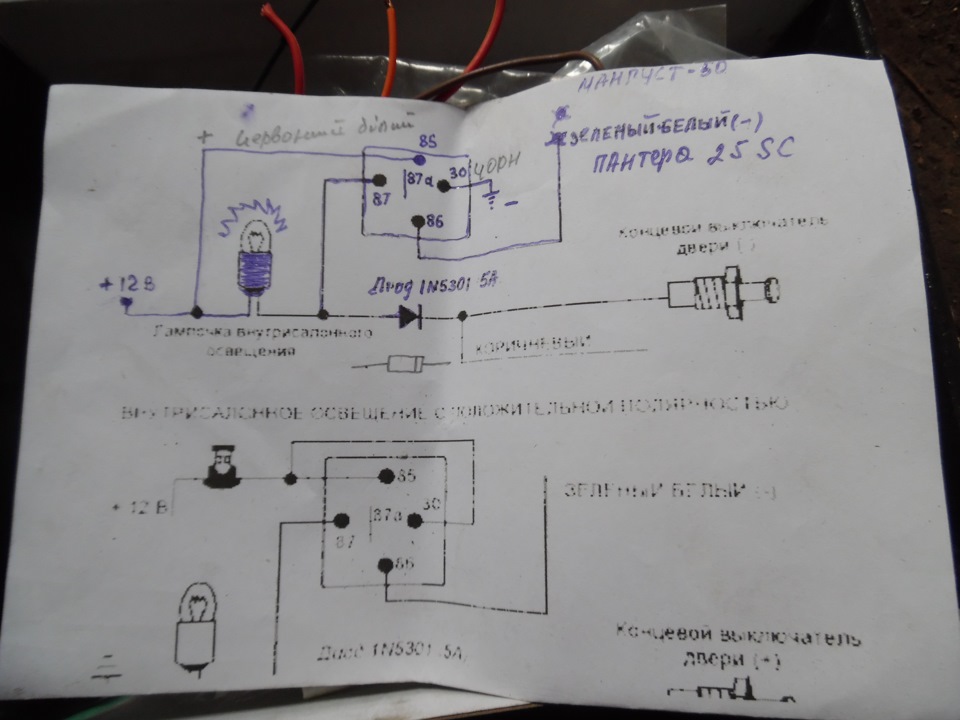 МАНГУСТ-30
+ червоний білий
85
ЗЕЛЕНЫЙ-БЕЛЫЙ (-)
ПАНТЕРА 25 SC
87
87а
30
ЧОРН
-
86
Концевой выключатель
двери (-)
+ 12 В
Диод 1N5301 5А
Лампочка внутрисалонного
освещения
КОРИЧНЕВЫЙ
ВНУТРИСАЛОННОЕ ОСВЕЩЕНИЕ С ПОЛОЖИТЕЛЬНОЙ ПОЛЯРНОСТЬЮ
85
+ 12 В
87
87а
30
86
ЗЕЛЕНЫЙ БЕЛЫЙ (-)
Диод 1N5301 (5А)
Концевой выключатель
двери (+)